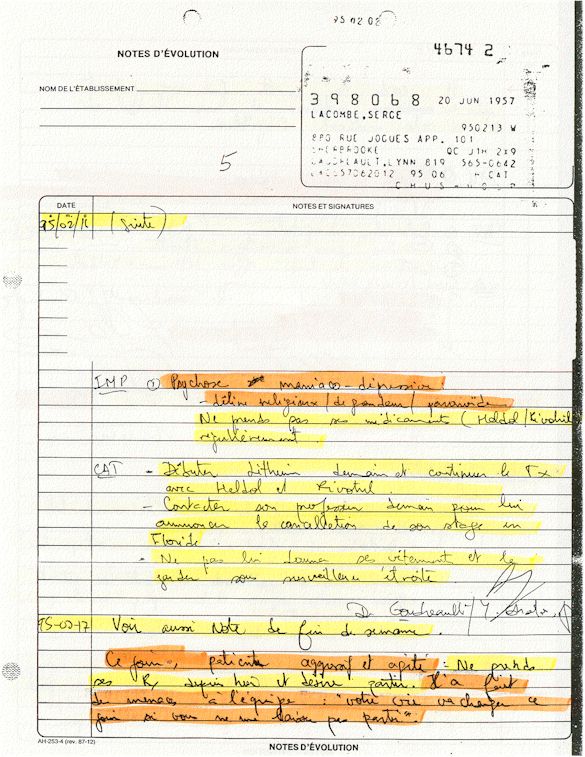 95 02 02
4674 2
NOTES D'ÉVOLUTION
NOM DE L'ÉTABLISSEMENT
398068 20 JUN 1957
LACOMBE,SERGE
950213 W
880 RUE JOGUES APP. 101
SHERBROOKE QC J1H 2X9
LYNN 819 565-0642
95 06 H CAT
5
DATE NOTES ET SIGNATURES
95/02/ (suite)
IMP ① Psychose maniaco-dépressive
- délire religieux/de grandeur/paranoïde
Ne prends pas ses médicaments (Haldol/Rivotril
régulièrement.
CAT - Débuter lithium demain et continuer le Tx
avec Haldol et Rivotril
- Contacter son professeur demain pour lui
announcer le cancellation de son stage en
Floride.
- Ne pas lui donner ses vêtement et le
garder sous surveillance étroite
Dr
95-02-17 Voir aussi Note de fin de semaine.
Ce jour, patient aggressif et agité. Ne prends
ses Rx depuis hier et désire partir. Il a fait
des menaces à l'équipe: "votre vie va changer ce
soir si vous ne me laissez pas partir".
AH-253-4 (rev. 87-12)
NOTES D'ÉVOLUTION